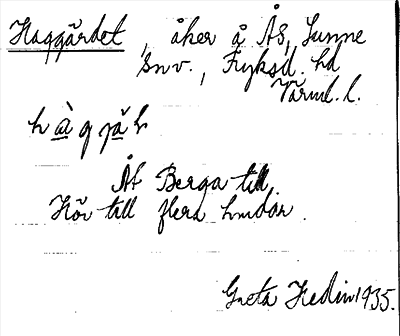 Haggärdet, åker å Ås, Sunne
snv., Fryksd. hd
Värml. l.
Åt Berga till
Hör till flera hmdar.
Greta Hedin 1935.